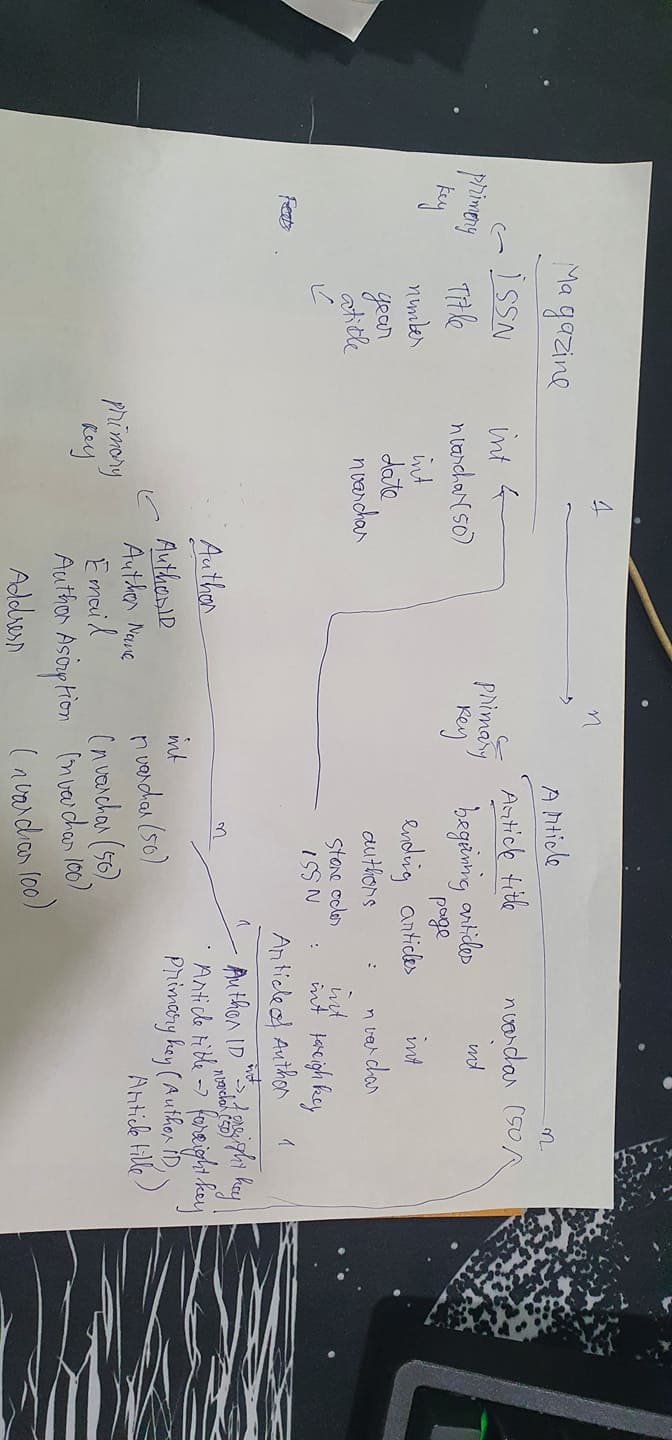 Magazine
1
n
primary
key
ISSN int
Title nvarchar(50)
number int
year date
aticle nvarchar
Article
n
primary
key
Article title nvarchar (50)
beginning articles int
page
ending articles int
authors : nvarchar
stone color : int
ISSN : int foreigh key
Author
n
primary
key
Author ID int
Author Name nvarchar (50)
Email (nvarchar (50)
Author Asoription (nvarchar 100)
Address (nvarchar 100)
Article of Author 1
1
Author ID int → foreight key
nvarchar(50)
Article title → foreight key
Primary key (Author ID,
Article title)